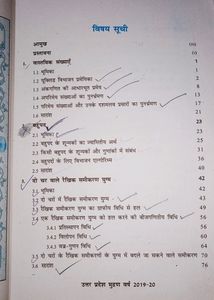 विषय सूची
आमुख iii
प्रस्तावना
1. वास्तविक संख्याएँ 1
1.1 भूमिका 1
1.2 यूक्लिड विभाजन प्रमेयिका
1.3 अंकगणित की आधारभूत प्रमेय
1.4 अपरिमेय संख्याओं का पुनर्भ्रमण
1.5 परिमेय संख्याओं और उनके दशमलव प्रसारों का पुनर्भ्रमण 17
1.6 सारांश 21
2. बहुपद 23
2.1 भूमिका 23
2.2 बहुपद के शून्यकों का ज्यामितीय अर्थ
2.3 किसी बहुपद के शून्यकों और गुणांकों में संबंध
2.4 बहुपदों के लिए विभाजन एल्गोरिथ्म
2.5 सारांश
3. दो चर वाले रैखिक समीकरण युग्म
3.1 भूमिका
3.2 दो चरों में रैखिक समीकरण युग्म
3.3 रैखिक समीकरण युग्म का ग्राफीय विधि से हल
3.4 एक रैखिक समीकरण युग्म को हल करने की बीजगणितीय विधि
3.4.1 प्रतिस्थापन विधि
3.4.2 विलोपन विधि
3.4.3 वज्र-गुणन विधि
3.5 दो चरों के रैखिक समीकरणों के युग्म में बदले जा सकने वाले समीकरण
3.6 सारांश 76
उत्तर प्रदेश मुद्रण वर्ष 2019-20